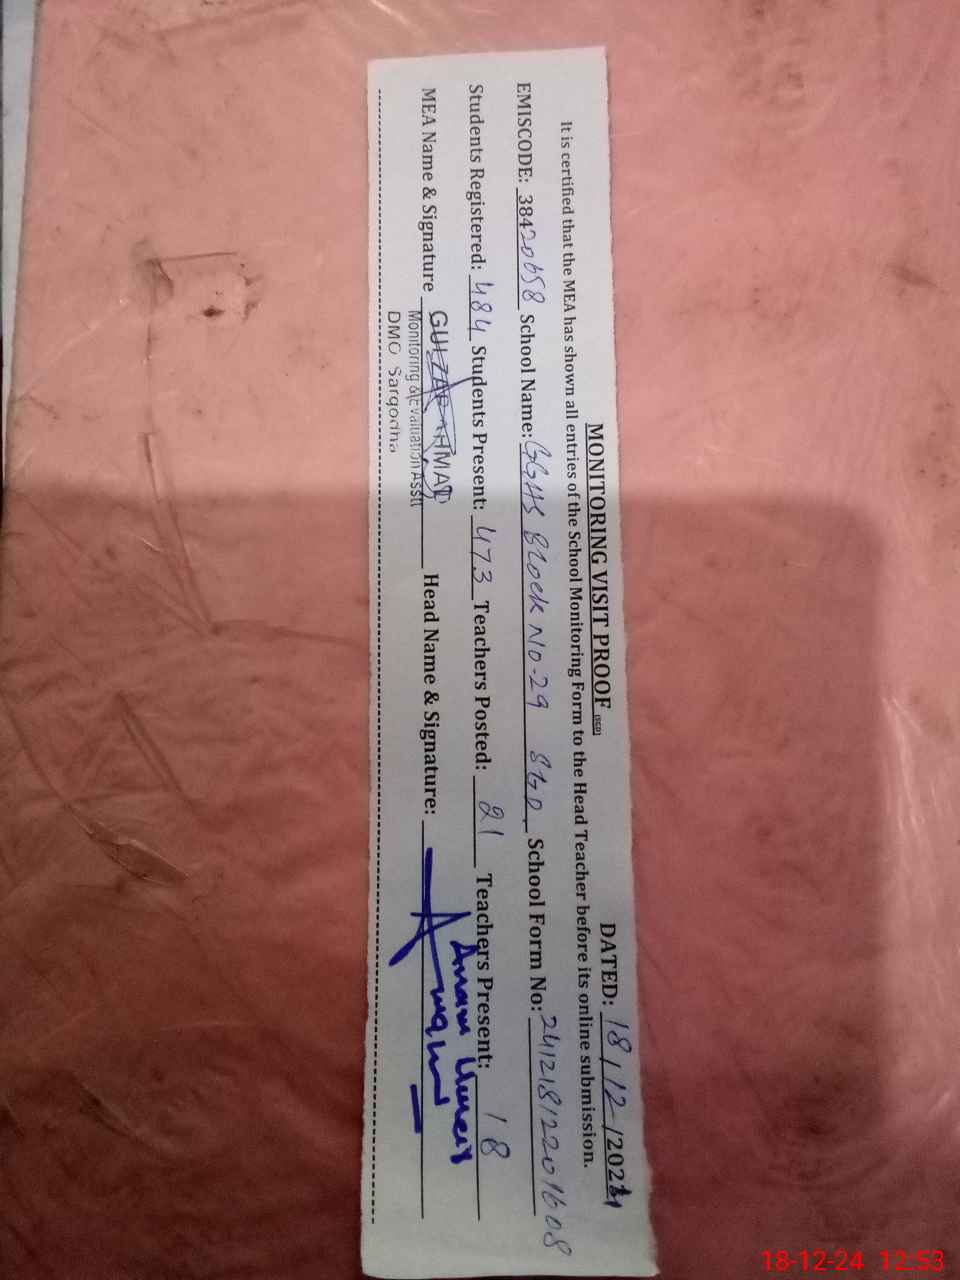 MONITORING VISIT PROOF (SGD) DATED: 18/12/2024
It is certified that the MEA has shown all entries of the School Monitoring Form to the Head Teacher before its online submission.
EMISCODE: 38420658 School Name: GGHS Block No-29 SGD. School Form No: 24121812201608
Students Registered: 484 Students Present: 473 Teachers Posted: 21 Teachers Present: 18
MEA Name & Signature GULZAR AHMAD Head Name & Signature: Anam
Monitoring & Evaluation Asstt
DMO Sargodha
18-12-24 12:53